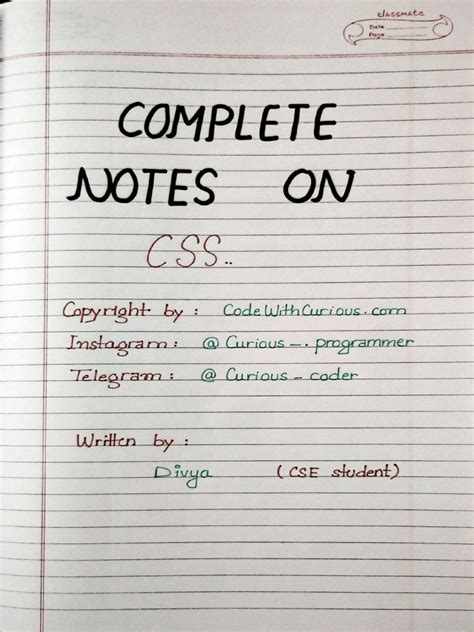 classmate
Date
Page
COMPLETE
NOTES ON
CSS..
Copyright by : CodeWithCurious.com
Instagram : @ Curious _ . programmer
Telegram : @ Curious _ coder
Written by :
Divya (CSE student)